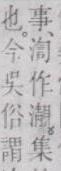 事、渹作集
也。今吳俗謂